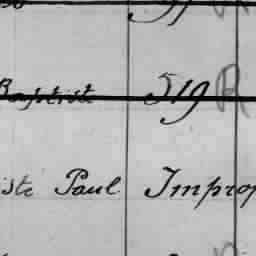 Baptiste 519 R
iste Paul Improp